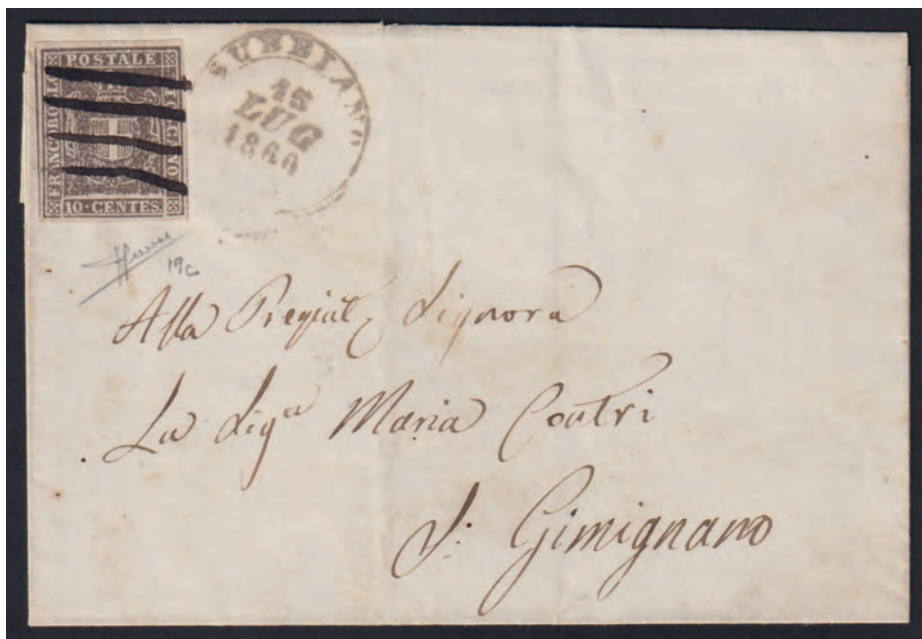 POSTALE
FRANCOBOLLO
TOSCANO
10·CENTES.
SUBBIANO
15
LUG
1860
19c
Alla Pregiat Signora
La Sigª Maria
S: Gimignano